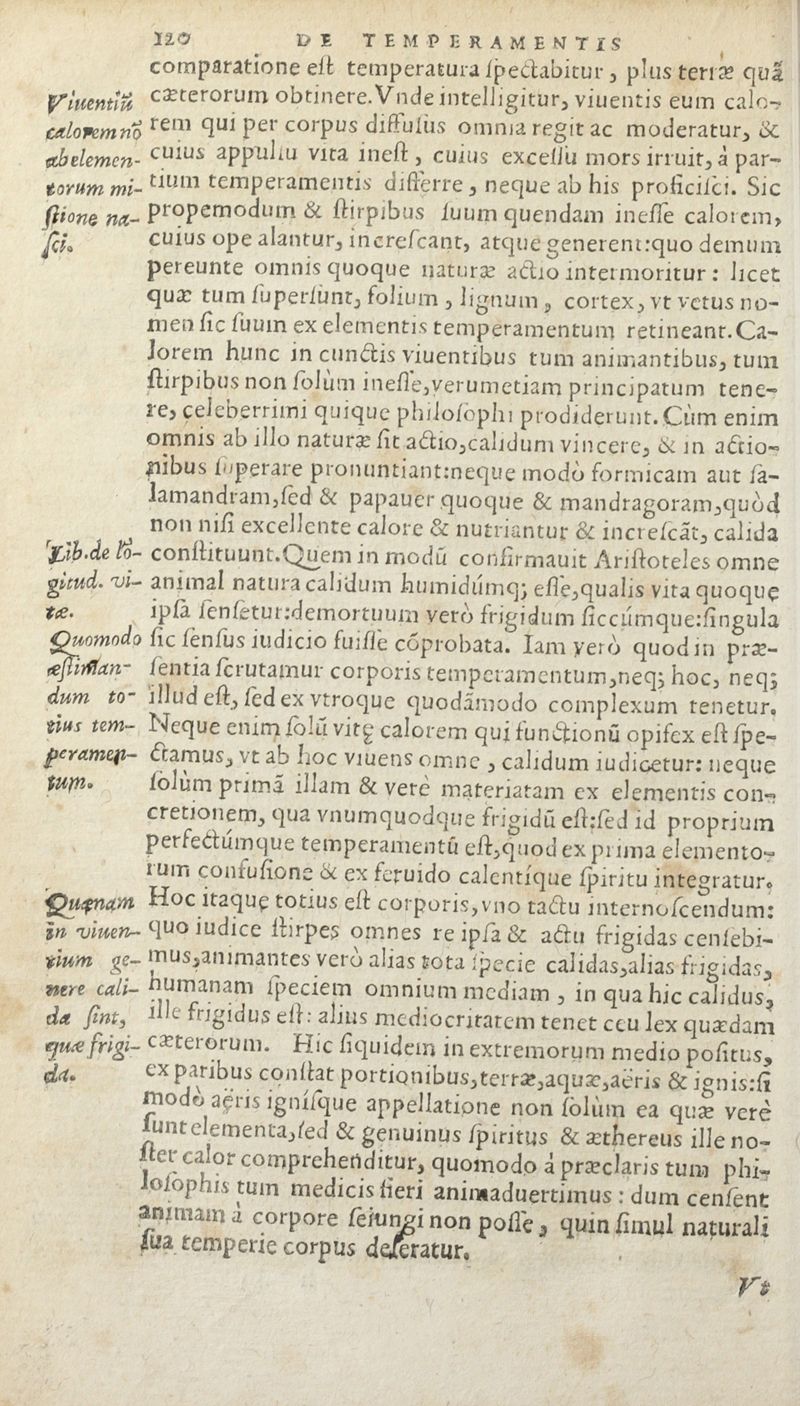 120 DE TEMPERAMENTIS
comparatione eſt temperatura ſpectabitur, plus terræ quã
cæterorum obtinere. Vnde intelligitur, viuentis eum calo-
rem qui per corpus diffuſus omnia regit ac moderatur, &
cuius appulſu vita ineſt, cuius exceſſu mors irruit, à par-
tium temperamentis differre, neque ab his proficiſci. Sic
propemodum & ſtirpibus ſuum quendam ineſſe calorem,
cuius ope alantur, increſcant, atque generent: quo demum
pereunte omnis quoque naturæ actio intermoritur: licet
quæ tum ſuperſunt, folium, lignum, cortex, vt vetus no-
men ſic ſuum ex elementis temperamentum retineant. Ca-
lorem hunc in cunctis viuentibus tum animantibus, tum
ſtirpibus non ſolùm ineſſe, verumetiam principatum tene-
re, celeberrimi quique philoſophi prodiderunt. Cùm enim
omnis ab illo naturæ ſit actio, calidum vincere, & in actio-
nibus ſuperare pronuntiant: neque modò formicam aut ſa-
lamandram, ſed & papauer quoque & mandragoram, quòd
non niſi excellente calore & nutriantur & increſcãt, calida
conſtituunt. Quem in modũ confirmauit Ariſtoteles omne
animal natura calidum humidúmq; eſſe, qualis vita quoque
ipſa ſenſetur: demortuum verò frigidum ſiccúmque: ſingula
ſic ſenſus iudicio fuiſſe cõprobata. Iam verò quod in præ-
ſentia ſcrutamur corporis temperamentum, neq; hoc, neq;
illud eſt, ſed ex vtroque quodãmodo complexum tenetur.
Neque enim ſolũ vitę calorem qui functionũ opifex eſt ſpe-
ctamus, vt ab hoc viuens omne, calidum iudicetur: neque
ſolùm primã illam & verè materiatam ex elementis con-
cretionem, qua vnumquodque frigidũ eſt: ſed id proprium
perfectúmque temperamentũ eſt, quod ex prima elemento-
rum confuſione & ex feruido calentíque ſpiritu integratur.
Hoc itaque totius eſt corporis, vno tactu internoſcendum:
quo iudice ſtirpes omnes re ipſa & actu frigidas cenſebi-
mus, animantes verò alias tota ſpecie calidas, alias frigidas,
humanam ſpeciem omnium mediam, in qua hic calidus,
ille frigidus eſt: alius mediocritatem tenet ceu lex quædam
cæterorum. Hic ſiquidem in extremorum medio poſitus,
ex paribus conſtat portionibus, terræ, aquæ, aëris & ignis: ſi
modò aëris igniſque appellatione non ſolùm ea quæ verè
ſunt elementa, ſed & genuinus ſpiritus & æthereus ille no-
ſter calor comprehenditur, quomodo à præclaris tum phi-
loſophis tum medicis fieri animaduertimus: dum cenſent
animam à corpore ſeiungi non poſſe, quin ſimul naturali
ſua temperie corpus deſeratur.
Vt
Viuentiũ
calorem nõ
ab elemen-
torum mi-
ſtione na-
ſci.
Lib. de lõ-
gitud. vi-
tæ.
Quomodo
æſtiman-
dum to-
tius tem-
peramen-
tum.
Quænam
in viuen-
tium ge-
nere cali-
da ſint,
quæ frigi-
da.